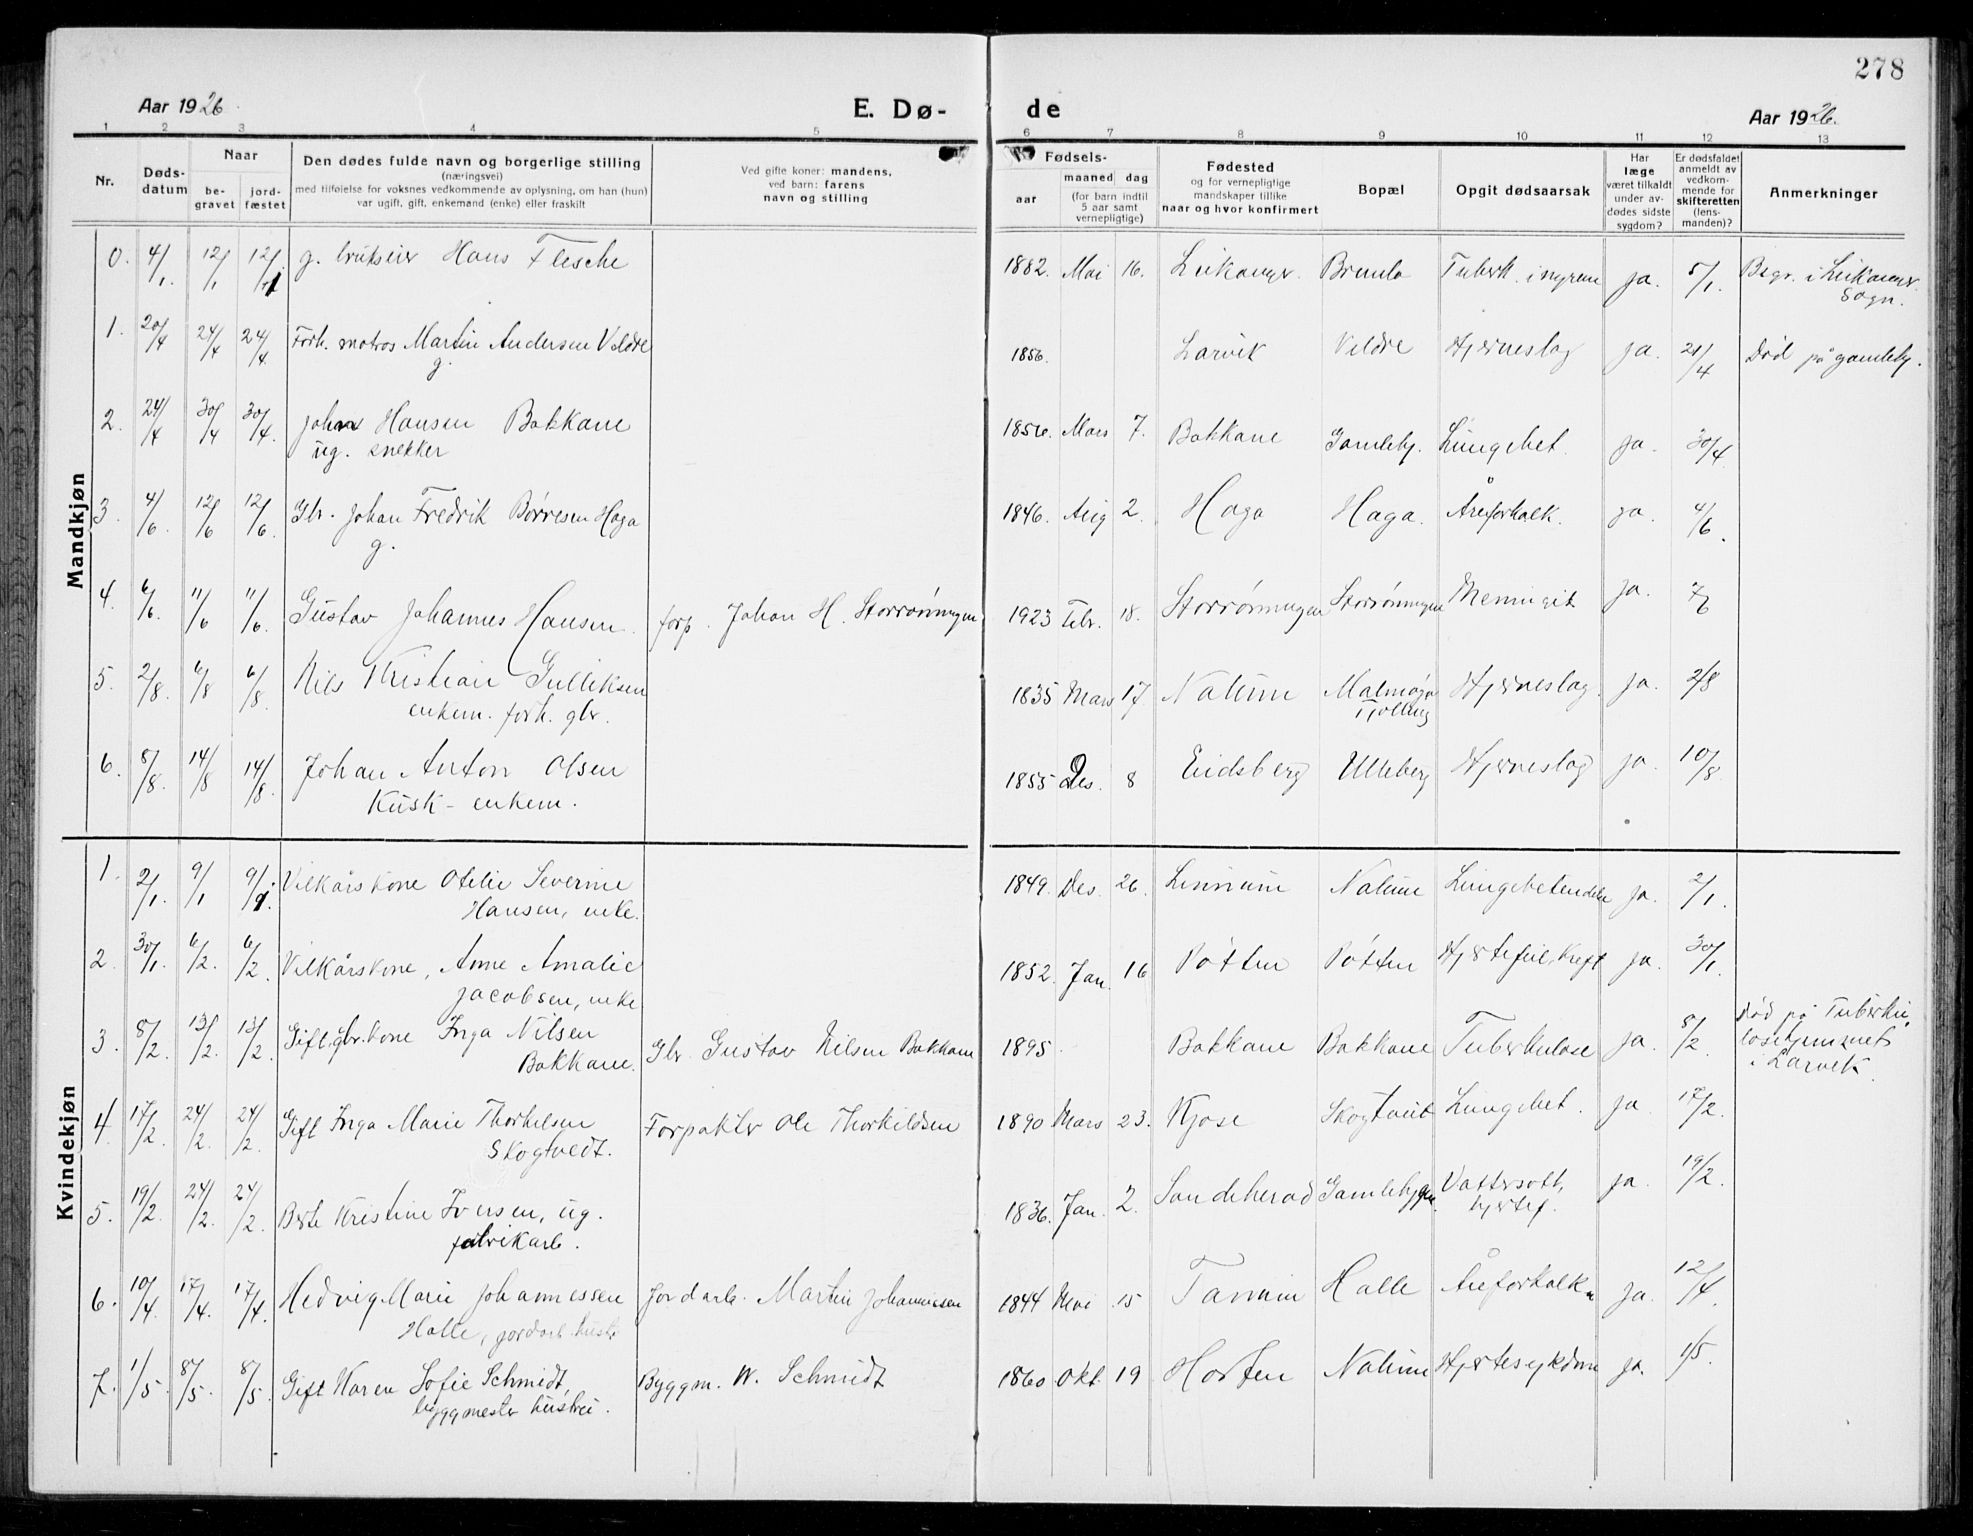 278
Aar 1926.
E. Dø-
de
Aar 1926.
1 2 3 4 5 6 7 8 9 10 11 12 13
Nr.
Døds-
datum
Naar
be-
gravet
jord-
fæstet
Den dødes fulde navn og borgerlige stilling
(næringsvei)
med tilføielse for voksnes vedkommende av oplysning, om han (hun)
var ugift, gift, enkemand (enke) eller fraskilt
Ved gifte koner: mandens,
ved barn: farens
navn og stilling
Fødsels-
aar
maaned dag
(for barn indtil
5 aar samt
vernepligtige)
Fødested
og for vernepligtige
mandskaper tillike
naar og hvor konfirmert
Bopæl
Opgit dødsaarsak
Har
læge
været tilkaldt
under av-
dødes sidste
sygdom?
Er dødsfaldet
anmeldt av
vedkom-
mende for
skifteretten
(lens-
manden)?
Anmerkninger
Mandkjøn
0. 4/1. 12/1 12/1 g. brukseier Hans Flesche 1882. Mai 16. Leikanger Brunla Tuberk. i nyrene ja. 5/1. Begr. i Leikanger
Sogn.
1. 20/4 24/4 24/4. Forh. matros Martin Andersen Veldre 1856. Larvik Veldre Hjerneslag ja. 21/4 Død på gamleby.
g.
2. 24/4 30/4 30/4. Johan Hansen Bakkane 1856. Mars 7. Bakkane Gamleby. Lungebet. ja. 30/4.
ug. snekker
3. 4/6 12/6 12/6. Gbr. Johan Fredrik Børresen Haga 1846. Aug 2. Haga Haga. Åreforkalk. ja. 4/6.
g.
4. 6/6. 11/6 11/6. Gustav Johannes Hansen. forp. Johan H. Storrønningen 1923 Febr. 18. Storrønningen Storrønningen Meningit ja. 7/6
5. 2/8. 6/8 6/8. Nils Kristian Gulliksen 1835 Mars 17. Nalum Malmøya Hjerneslag. ja. 2/8
enkem. forh. gbr. Tjølling
6. 8/8. 14/8 14/8. Johan Anton Olsen 1855 Des. 8 Eidsberg Ulleberg Hjerneslag ja. 10/8
Kusk - enkem.
Kvindekjøn
1. 2/1. 9/1 9/1. Vilkårskone Otelie Severine 1849. Des. 26. Linnum Nalum Lungebetendelse ja. 2/1.
Hansen, enke.
2. 30/1. 6/2. 6/2. Vilkårskone, Anne Amalie 1852. Jan. 16 Pøtten Pøtten Hjertefeil, Kreft ja. 30/1.
Jacobsen, enke
3. 8/2. 13/2. 13/2. Gift, gbr.kone Inga Nilsen Gbr. Gustav Nilsen Bakkane 1895. Bakkane Bakkane Tuberkulose ja. 8/2. Død på Tuberku-
Bakkane. losehjemmet
i Larvik.
4. 17/2. 24/2. 24/2. Gift Inga Marie Thorkelsen Forpakter Ole Thorkildsen 1890 Mars 23. Kjose Skogtveit Lungebet. ja. 17/2.
Skogtvedt.
5. 19/2. 24/2. 24/2. Berte Kristine Iversen, ug. 1836. Jan. 2. Sandeherad Gamlebygn. Vattersott, ja. 19/2.
fabrikarb. hjertef.
6. 10/4. 17/4. 17/4. Hedvig Marie Johannessen Jordarb. Martin Johannesen 1844 Mai 15 Tanum Halle Åreforkalkn ja. 12/4.
Halle, jordarb. hustr
7. 1/5. 8/5. 8/5. Gift Karen Sofie Schmidt, Byggm. W. Schmidt 1860 Okt. 19 Horten Nalum Hjertesykdom ja. 1/5.
byggmester hustru.